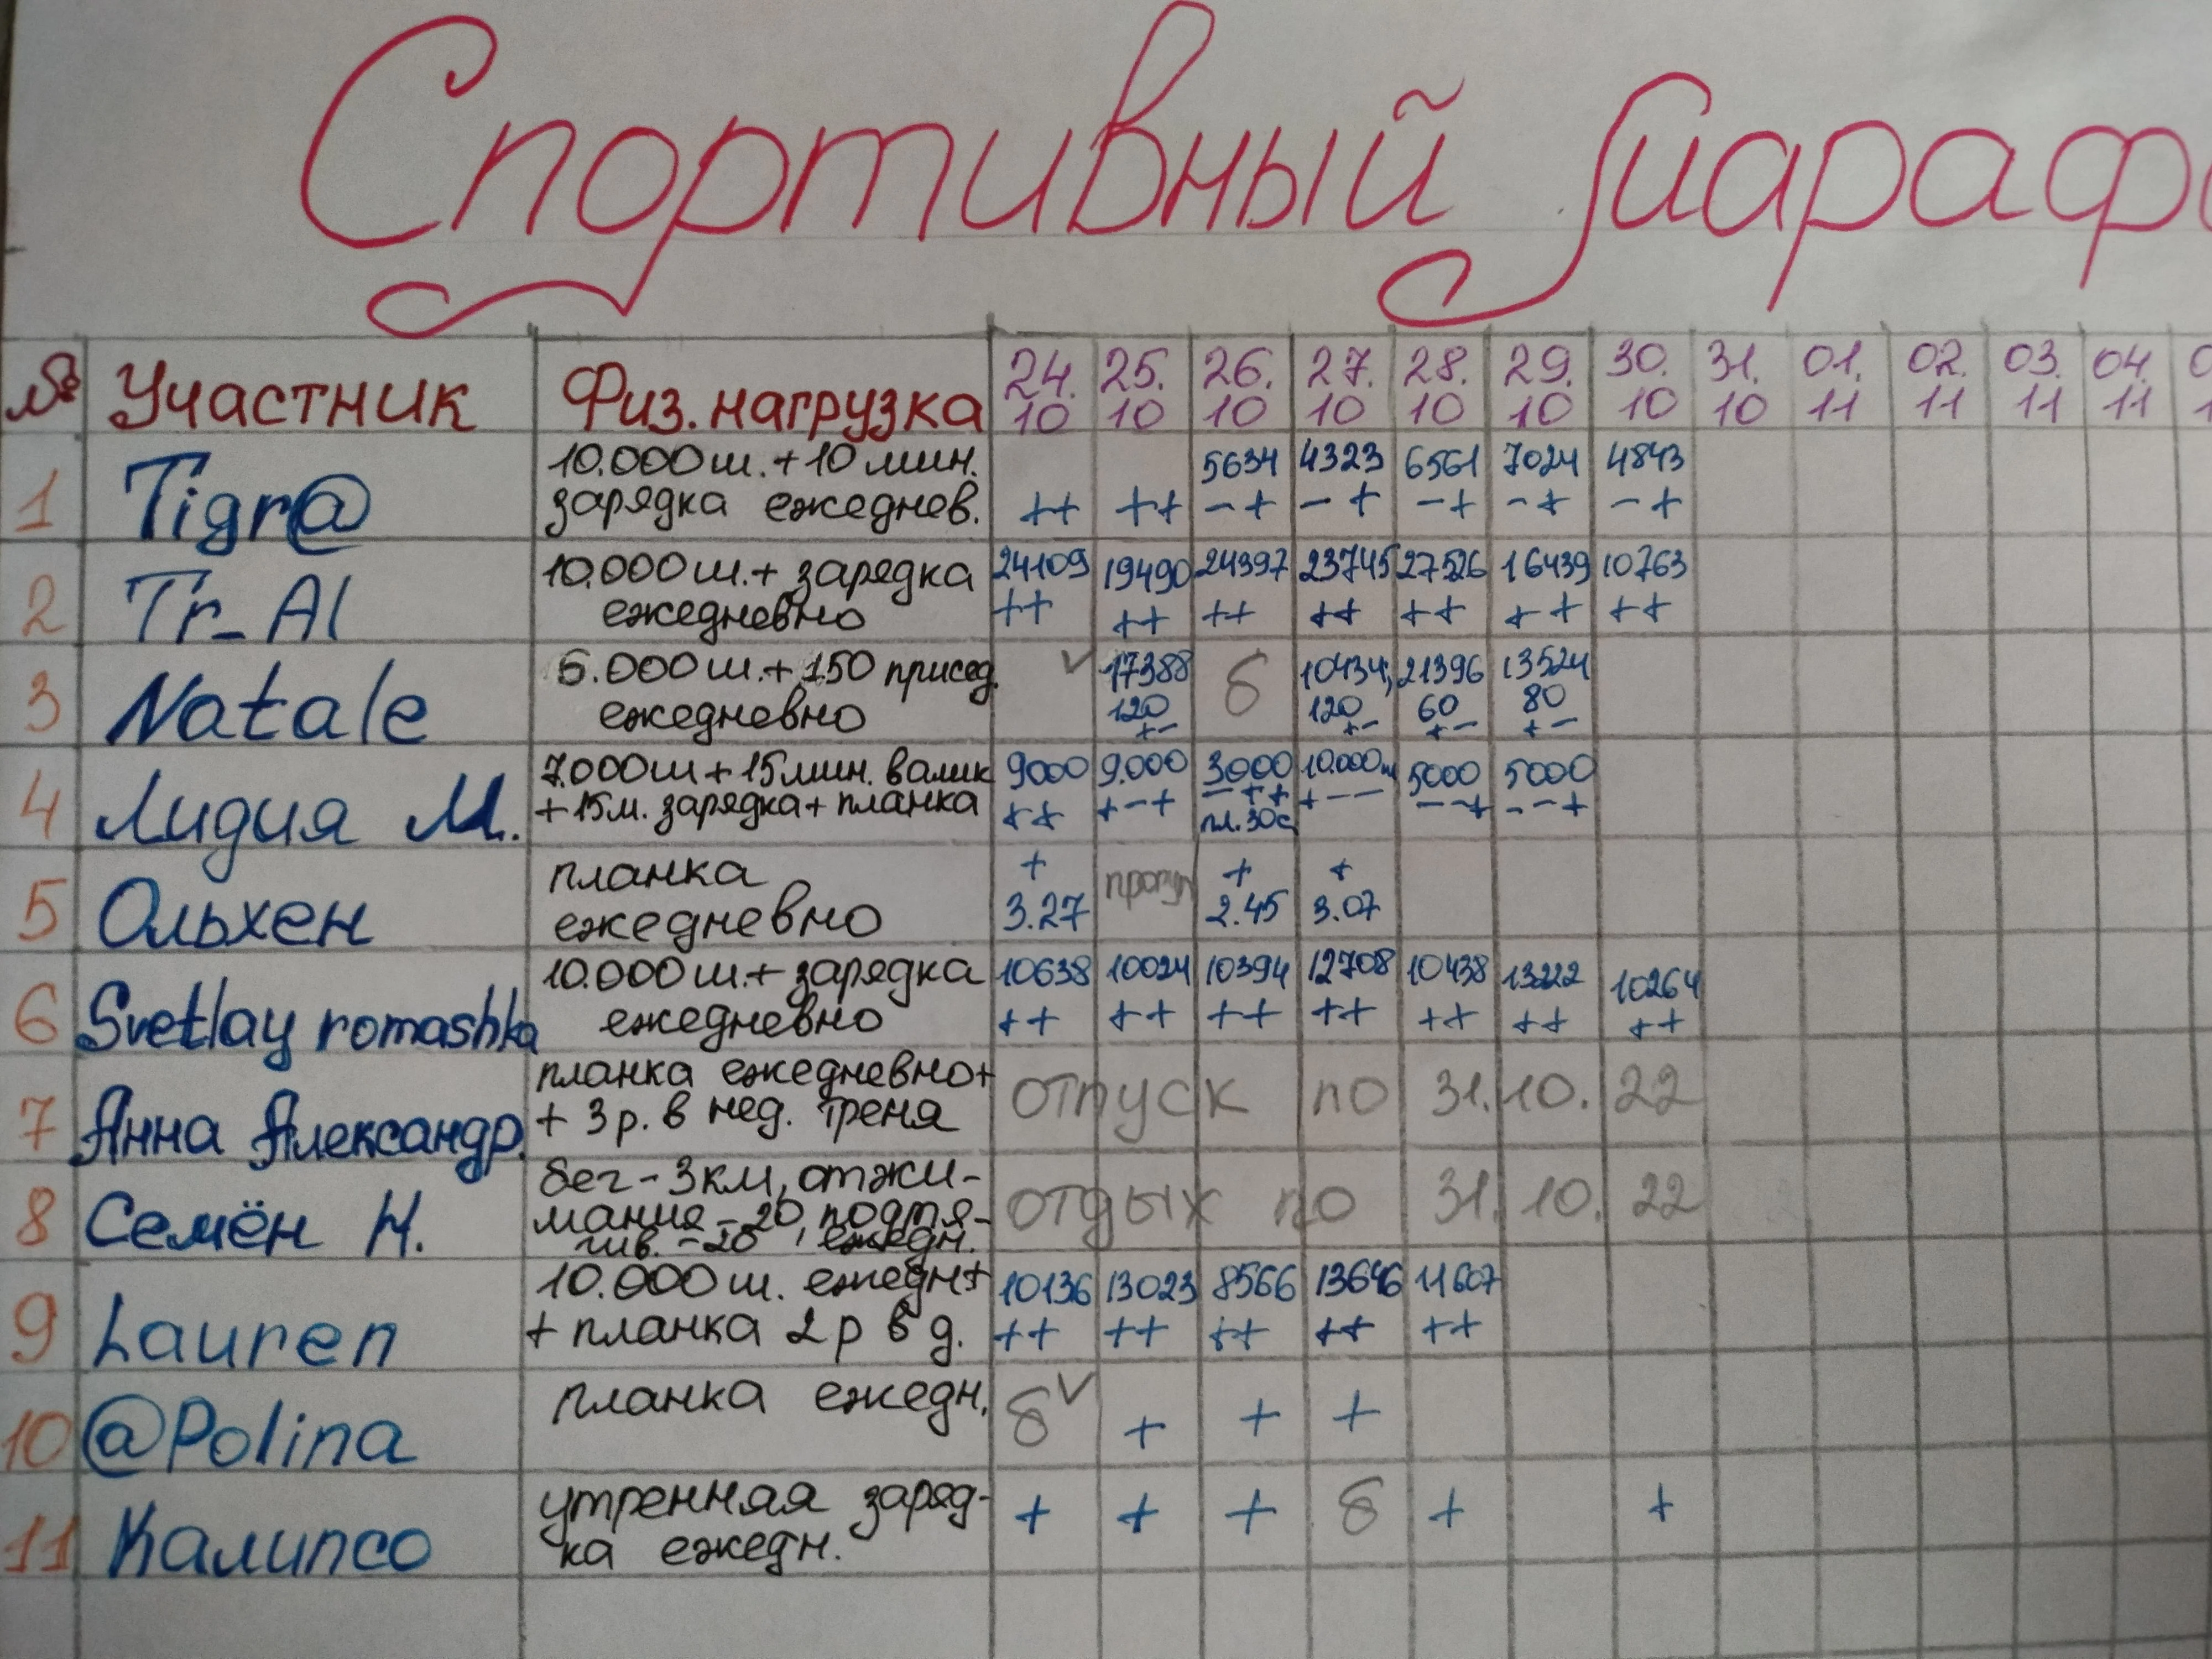 Спортивный мараф
№ Участник Физ. нагрузка 24. 25. 26. 27. 28. 29. 30. 31. 01. 02. 03. 04.
10 10 10 10 10 10 10 10 11 11 11 11
1 Tigr@ 10.000 ш. + 10 мин. 5634 4323 6561 7024 4843
зарядка ежеднев. ++ ++ -+ -+ -+ -+ -+
2 Tr_Al 10.000 ш. + зарядка 24109 19490 24397 23745 27526 16439 10763
ежедневно ++ ++ ++ ++ ++ ++ ++
3 Natale 6.000 ш. + 150 присед. ✓ 17388 б 10434, 21396 13524
ежедневно 120 120 60 80
+- +- +- +-
4 Лидия М. 7.000 ш + 15 мин. валик 9000 9.000 3000 10.000ш 5000 5000
+ 15 м. зарядка + планка ++ +-+ -++ +-- --+ --+
пл. 30с
5 Ольхен планка + прогул + +
ежедневно 3.27 2.45 3.07
6 Svetlay romashka 10.000 ш. + зарядка 10638 10024 10394 12708 10438 13222 10264
ежедневно ++ ++ ++ ++ ++ ++ ++
7 Анна Александр. планка ежедневно+ отпуск по 31.10.22
+ 3 р. в нед. треня
8 Семён Н. бег - 3 км, отжи- отдых по 31.10.22
мания - 20, подтя-
гив. - 20, ежедн.
9 Lauren 10.000 ш. ежедн+ 10136 13023 8566 13646 11607
+ планка 2 р в д. ++ ++ ++ ++ ++
10 @Polina планка ежедн. б ✓ + + +
11 Калипсо утренняя заряд- + + + б + +
ка ежедн.